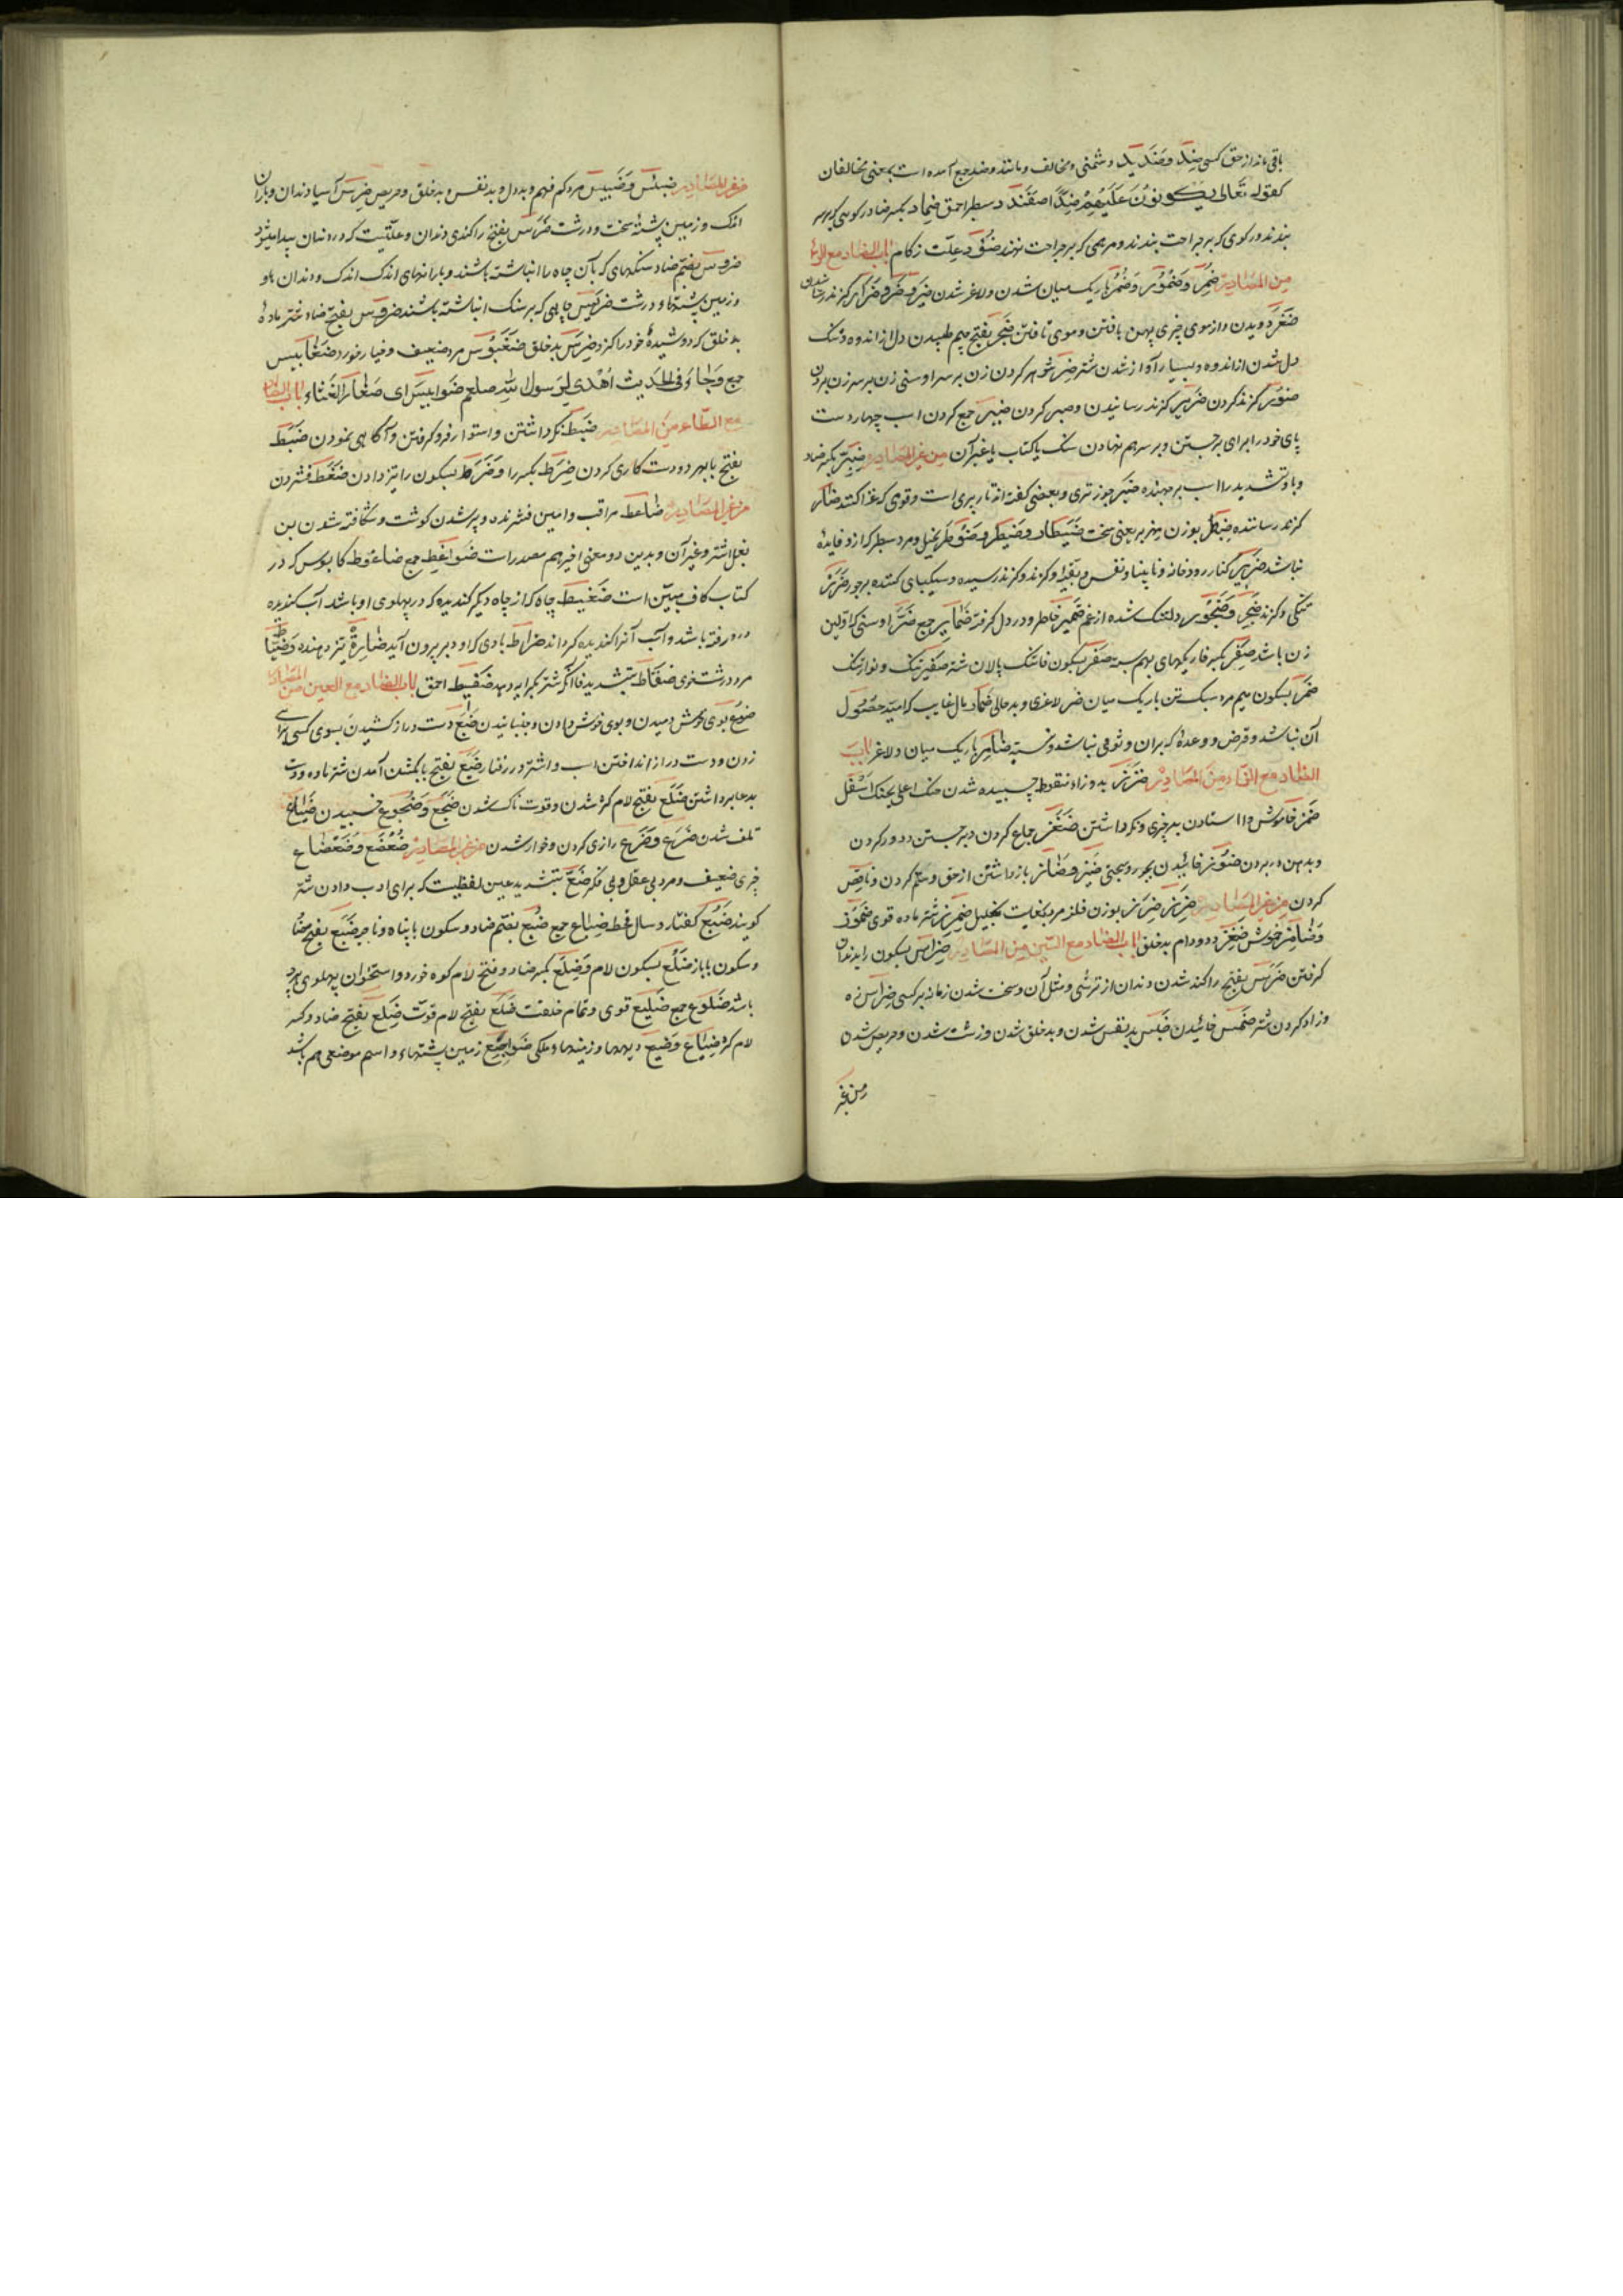 باقی ماند از حق کسی ضِدّ وَضَدِید دشمنی و مخالف و مانند و ضد جمع آمده است بمعنی مخالفان
کقوله تَعَالی یَکُونُونَ عَلَیْهِمْ ضِدًّا ضَفَنْدَد سطبر احمق ضِماد بکسر ضاد رکوهی که بر سر
بندند و رکوی که بر جراحت بندند و مرهمی که بر جراحت نهند ضُؤْد علّت زکام باب الضاد مع الراء
مِنَ المَصَادِر ضُمْر وَضُمُوْر وَضُمُر باریک میان شدن و لاغر شدن ضَیْر وَضَرّ گزند رسانیدن
ضَفْر دویدن و از موی چیزی پهن بافتن و موی تافتن ضَجَر بفتح جیم طپیدن دل از اندوه و تنگ
دل شدن از اندوه و بسیار آواز شدن شتر ضِرّ شوهر کردن زن بر سر او سنی زن بر سر زن بردن
ضَوْر گزند کردن ضَرِیر گزند رسانیدن و صبر کردن ضَبْر جمع کردن اسب چهار دست
پای خود را برای برجستن و بر سر هم نهادن سنگ یا کتاب یا غیر آن مِن غیر المصادر ضِبِرّ بکسر ضاد
و با و تشدید را اسب برجهنده ضَبْر جوز تری و بعضی گفته اند نار بری است و قومی که غزا کنند ضارّ
گزند رساننده ضِبَطْر بوزن هزبر یعنی سخت ضَیْطار وَضَیْطَر وَضَوْطَر بخیل و مرد سطبر که ازو فایدۀ
نباشد ضَرِیر کنار رودخانه و نابینا و نفس و بقیّه و گزند و گزند رسیده و سیکبای کننده بر جور ضَرَر
تنگی و گزند ضَجِر وَضَجُوْر دلتنگ شده از غم ضَمِیر خاطر و در دل گرفته ضَمَایِر جمع ضَرّ اوسنی که اوّلین
زن باشد ضِفْر بکسر فا ریگهای بهم بسته ضَفْر بسکون فا تنگ پالان شتر ضَفِیر تنگ و نوار تنگ
ضَمْر بسکون میم مرد سبک تن باریک میان ضُر لاغری و بدحالی ضِمَار مال غایب که امید حصُول
آن نباشد و قرض و وعده که بر آن وثوقی نباشد و نسیه ضَامِر باریک میان و لاغر بَاب
الضَّاد مع الزّاء مِنَ المَصَادِر ضَزَز به دو زاء منقوطه چسبیده شدن حنک اعلی بحنک اَسْفَل
ضَمْز خاموش و ا استادن بهر چیزی و نگه داشتن ضَفْز جماع کردن و برجستن و دور کردن
و بدهن در بردن ضَوْز خائیدن بجور و بجبی ضَیْز وَضَاز باز داشتن از حق و ستم کردن و ناقص
کردن مِن غیر المصادر ضِرِز بوزن فلز مرد بغایت بخیل ضِمْرِز شتر ماده قوی ضَمُوْز
وَضَامِز خاموش ضَفِز دد و دام بدخلق باب الضاد مع السّین مِنَ المَصَادِر ضِرَاس بسکون را بدندان
گرفتن ضَرَس بفتح را کند شدن دندان از ترشی و مثل آن و سخت شدن زمانه بر کسی ضِرَاس زه
و زاد کردن شتر ضَمْس خائیدن ضَبَس بد نفس شدن و بدخلق شدن و زشت شدن و حریص شدن
من غیر
من غیر المصادر ضَبِس وَضَبِیس مرد کم فهم و بددل و بد نفس و بدخلق و حریص ضِرْس آسیا دندان و باران
اندک و زمین پشتۀ سخت و درشت ضَرَس بفتح را کندی دندان و علّتیست که در دندان پیدا میشود
ضُروس بضم ضاد سنگهای که بآن چاه را انباشته باشند و بارانهای اندک اندک و دندان ها و
و زمین پشتها و درشت ضَرِیس چاهی که بر سنگ انباشته باشند ضَروس بفتح ضاد شتر مادۀ
بدخلق که دوشیدۀ خود را گزد ضَرِس بدخلق ضُغْبُوْس مرد ضعیف و خیار خورد ضَغَابیس
جمع وَجَاءَ فی الحَدِیث اُهْدِیَ لِرَسول الله صلعم ضَغَابیس ای صغار القثّاء باب الضاد
مع الطّاء مِنَ المَصَادِر ضَبْط نگه داشتن و استوار فرو گرفتن و آگاهی نمودن ضَبَط
بفتح با بهر دو دست کاری کردن ضَرِط بکسر را وَضَرْط بسکون را تیز دادن ضَغْط فشردن
من غیر المصادر ضَاغط مراقب و امین فشرنده و پر شدن گوشت و شکافته شدن بن
بغل اشتر و غیر آن و بدین دو معنی اخیر هم مصدر است ضَوَاغِط جمع ضاغوط کابوس که در
کتاب کاف مبیّن است ضَغِیط چاه که از چاه دیگر گندیده که در پهلوی او باشد آب گندیده
درو رفته باشد و آب آنرا گندیده گرداند ضُراط بادی که او دبر بیرون آید ضَارِط تیز دهنده وَضَیّاط
مرد درشت خوی ضَفّاط بتشدید فا آنکه شتر بکرایه دهد ضَفِیط احمق باب الضاد مع العین مِنَ المصادر
ضَوْع بوی خوش دمیدن و بوی خوش دادن و جنبانیدن ضَبْع دست دراز کشیدن بسوی کسی برای
زدن و دست دراز انداختن اسب و اشتر در رفتار ضَبَع بفتح با بگشن آمدن شتر ماده و دست
بدعا برداشتن ضَلَع بفتح لام کژ شدن و قوت ناک شدن ضَجْع وَضُجُوْع خسبیدن ضَیَاع
تلف شدن ضَرَع وَضَرَاعَ زاری کردن و خوار شدن من غیر المصادر ضُعْضُع وَضَعْضَاع
چیزی ضعیف و مرد بی عقل و بی فکر ضَعّ بتشدید عین لفظیست که برای ادب دادن شتر
گویند ضَبُع کفتار و سال قحط ضِبَاع جمع ضُبْع بضم ضاد و سکون با پناه و ناحیه ضَبْع بفتح ضاد
و سکون با بازو ضِلْع بسکون لام وَضِلَع بکسر ضاد و فتح لام کوه خورد و استخوان پهلوی هر چه
باشد ضُلُوع جمع ضَلِیع قوی و تمام خلقت ضَلَع بفتح لام قوّت ضَلِع بفتح ضاد و کسر
لام کژ ضِیَاع وَضِیَع دیهها و زمینها و ملکی ضَوَاجِع زمین پشتها و اسم موضعی هم باشد